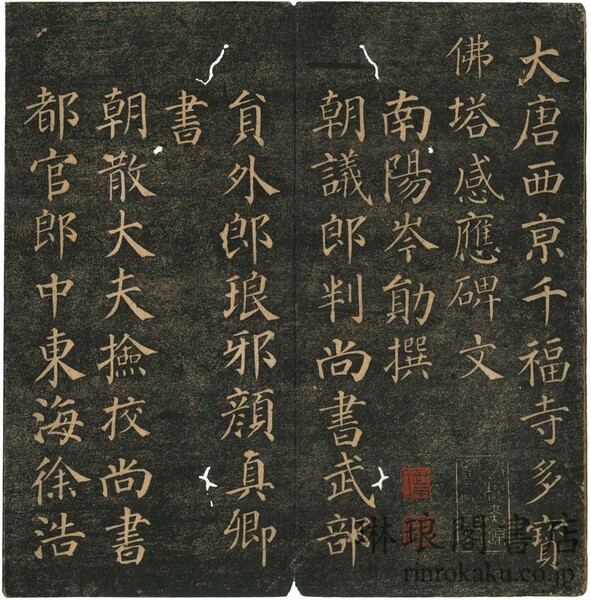 大唐西亰千福寺多寶
佛塔感應碑文
南陽岑勛撰
朝議郎判尚書武部
貟外郎琅邪顏真卿
書
朝散大夫撿挍尚書
都官郎中東海徐浩
琳琅閣書店
rinrokaku.co.jp